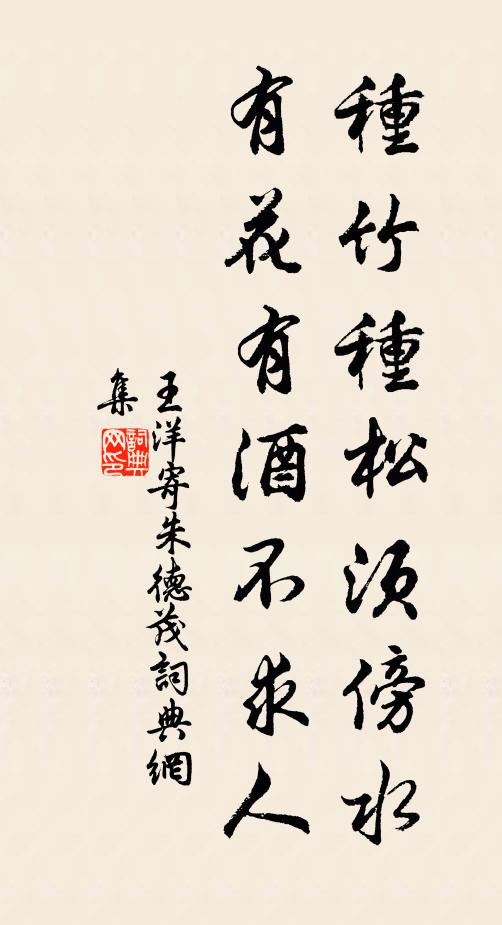 種竹種松須傍水
有花有酒不求人
王洋寄朱德茂詞典網
集
詞典网印